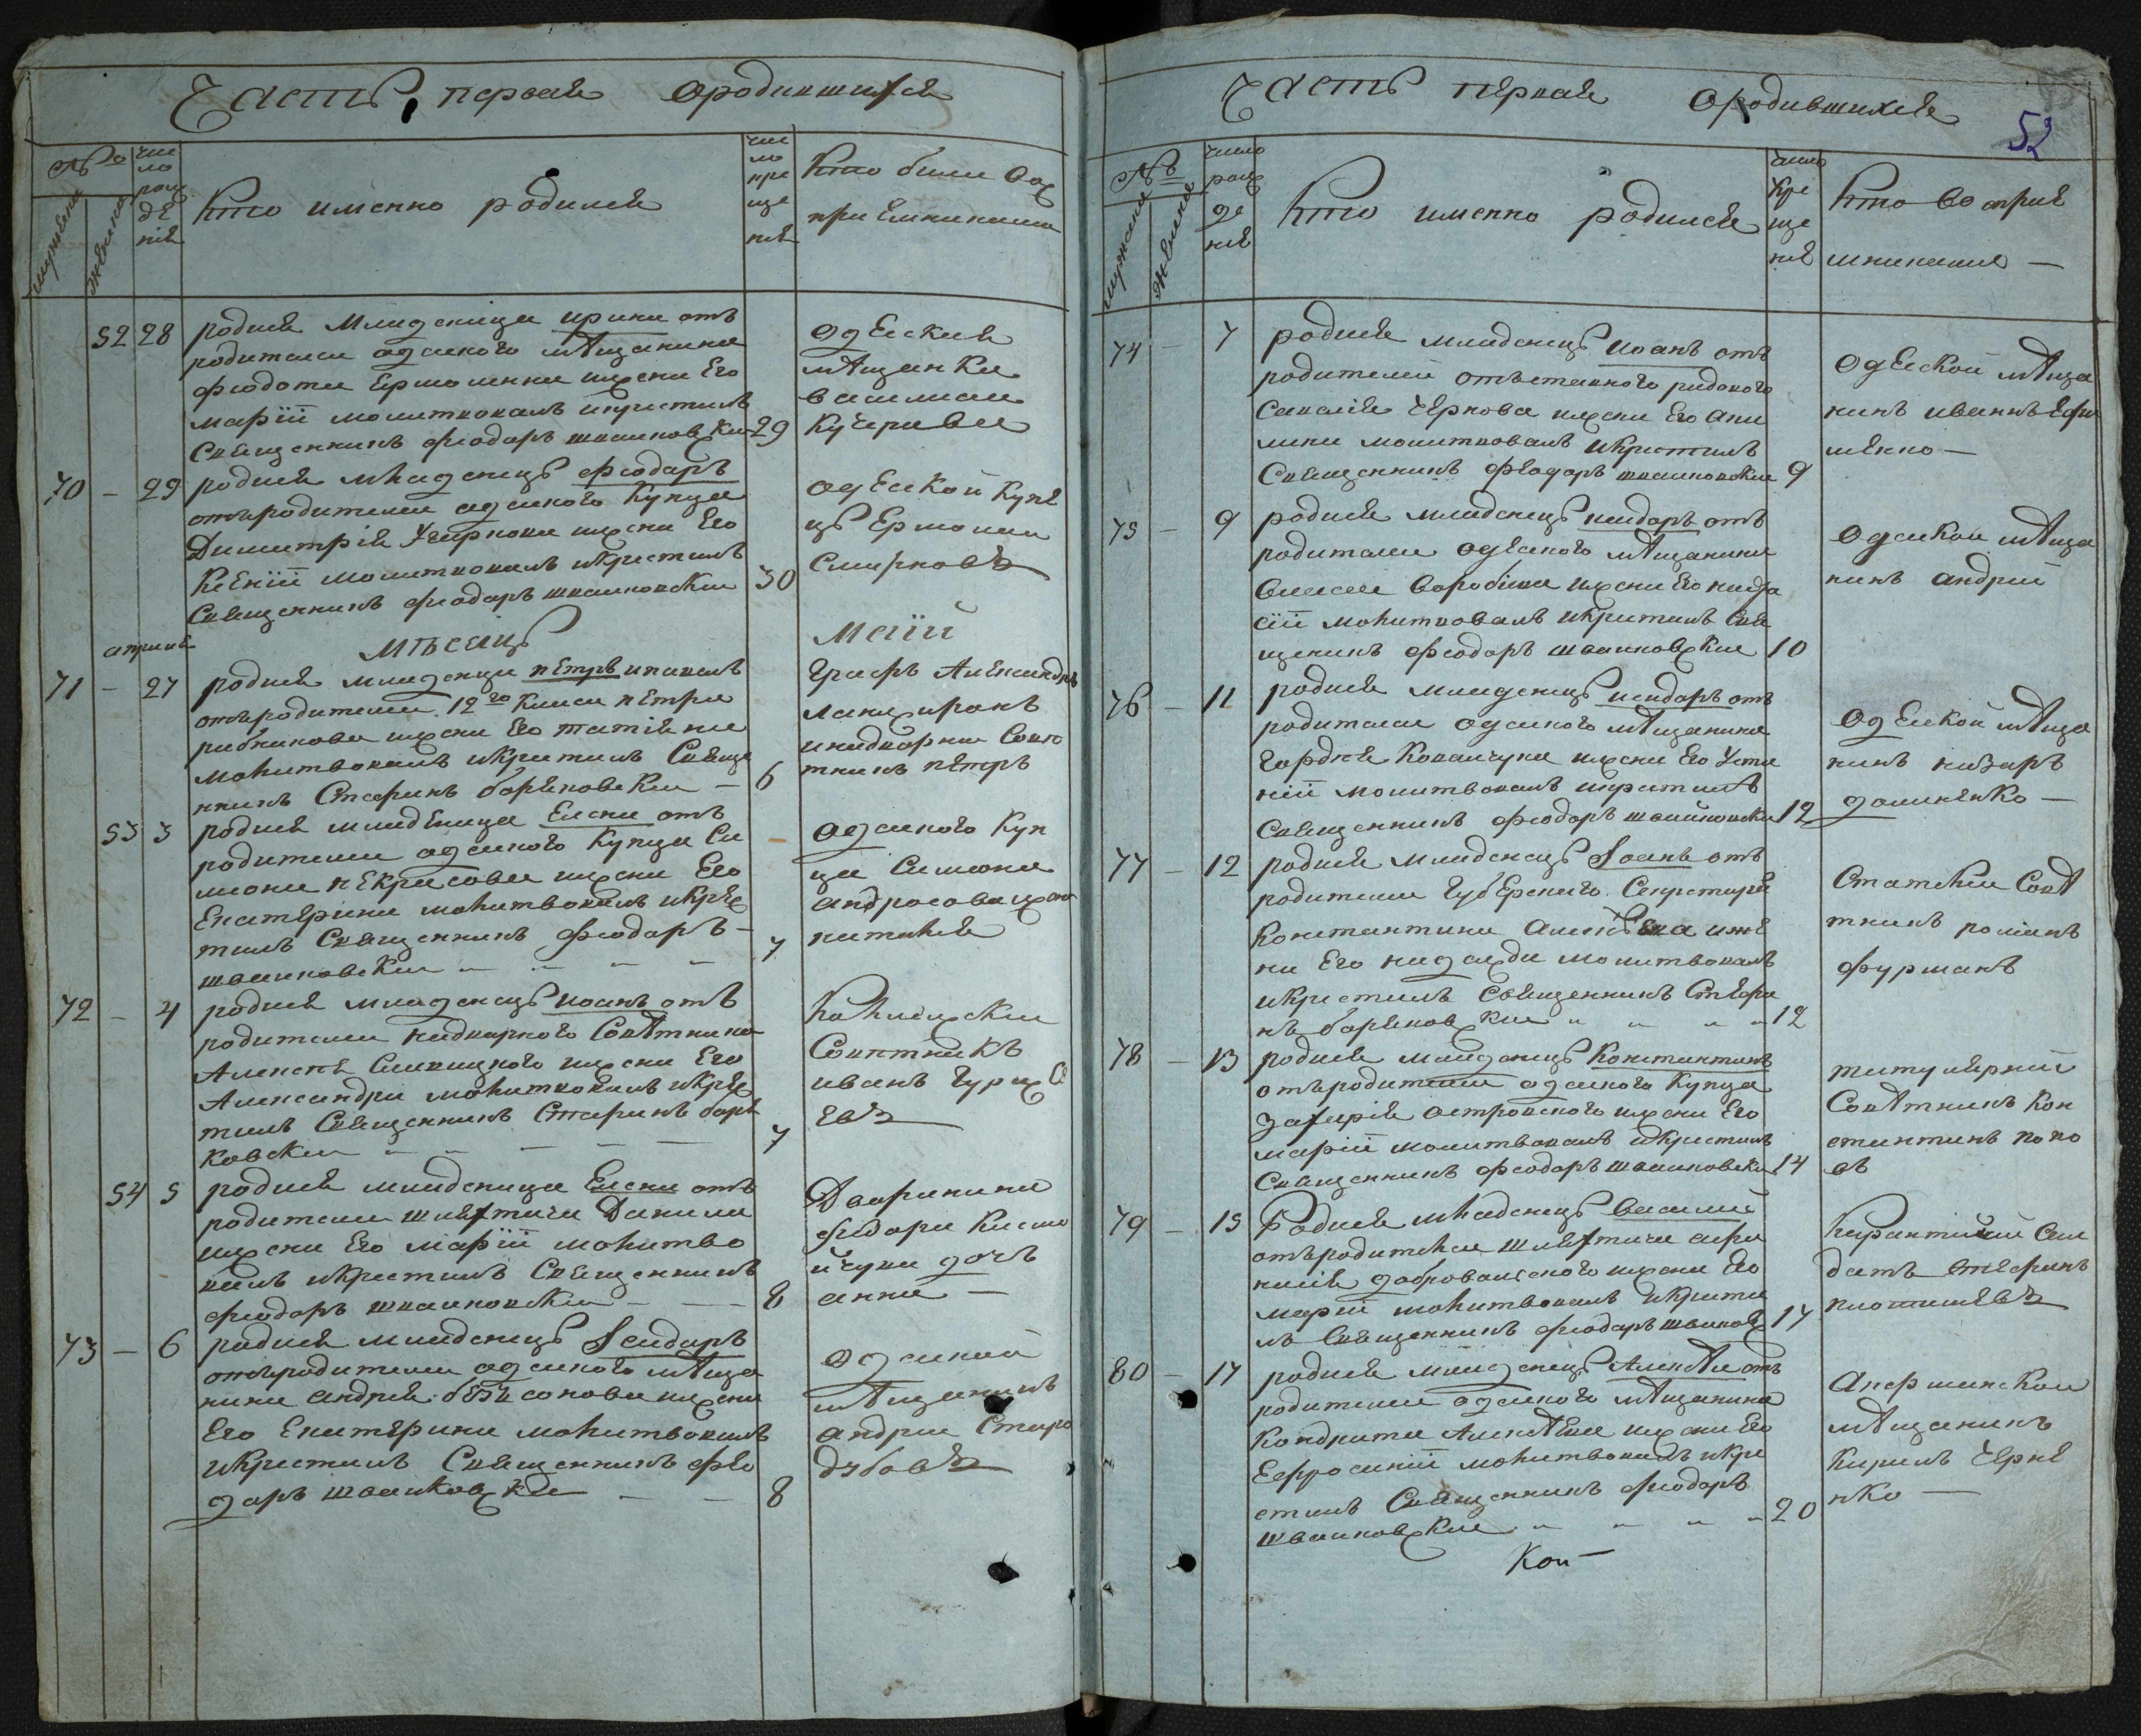 Часть первая ородившихся
№
мужеска
женска
чис
ло
рож
де
нія
кто именно родился
чис
ло
кре
ще
нія
кто были вос
приемниками
52 28 родися младеница ирина отъ
родители одеского мѣщанина
феодота Ермоленка жени Его
маріи молитвовалъ икрестилъ
Священникъ феодоръ шваиковски 29
одеския
мѣщанка
василиса
Кучерава
70 – 29 родися младенецъ феодоръ
отъродители одеского купца
Димитрія жени Его
Ксеніи молитвовалъ икрестилъ
Священникъ феодоръ шваиковски 30
одеской купе
цъ Ермолаи
Смирновъ
априля
мѣсяцъ
Маій
71 – 27 родися младенци петръ ипавелъ
отъродители 12го класа петра
рибникова жени Его татіяни
молитвовалъ икрестилъ Свяще
нникъ Стефанъ боряковски – 6
Графъ Александръ
ланжеронъ
инадворни Совѣ
тникъ петръ
53 3 родися младеница Елена отъ
родители одеского купца Си
мона некрасова жени Его
Екатерини молитвовалъ икрес
тилъ Священникъ феодоръ – 7
шваиковски
одеского куп
ца Симона
андросова жена
наталія
72 – 4 родися младенецъ иоанъ отъ
родители надворного Совѣтника
жени Его
Александри молитвовалъ икрес
тилъ Священникъ Стефанъ боря
ковски 7
Колежски
Советникъ
иванъ
евъ
54 5 родися младеница Елена отъ
родители шляхтича Данила
жени Его маріи молитво
валъ икрестилъ Священникъ
феодоръ шваиковски – 8
Дворянина
федора
дочь
анна –
73 – 6 родися младенецъ Ісидоръ
отъродители одеского мѣща
нина андрея жени
Его Екатерини молитвовалъ
икрестилъ Священникъ фео
доръ шваиковски – 8
одеской
мѣщанинъ
андреи Старо
дубовъ
Часть первая ородившихся
52
№
мужеска
женска
число
рож
де
нія
кто именно родился
число
кре
ще
нія
кто воспрія
мникамы –
74 – 7 родися младенецъ иоанъ отъ
родителей отъставного рядового
Савелія Чернова жени Его
молитвовалъ икрестилъ
Священникъ феодоръ шваиковски 9
одеской мѣща
нинъ иванъ Ефи
менко –
75 – 9 родися младенецъ исидоръ отъ
родители одеского мѣщанина
жени Его
молитвовалъ икрестилъ Свя
щеникъ феодоръ шваиковски 10
одеской мѣща
нинъ андрей
76 – 11 родися младенецъ исидоръ отъ
родители одеского мѣщанина
Гордея Ковалчука жени Его Усти
ніи молитвовалъ икрестилъ
Священникъ феодоръ швайковски 12
одеской мѣща
нинъ назаръ
долиненко –
77 – 12 родися младенецъ Іоанъ отъ
родители Губерского Секретаря
Константина ижѣ
ни Его надежди молитвовалъ
икрестилъ Священникъ Стефа
нъ боряковски 12
Статски Совѣ
тникъ романъ
фурманъ
78 – 13 родися младенецъ Константинъ
отъродители одеского купца
Захарія островского жени Его
маріи молитвовалъ икрестилъ
Священникъ феодоръ шваиковски 14
титулярній
Совѣтникъ Кон
стантинъ попо
въ
79 – 15 Родися младенецъ василій
отъродители шляхтича
добровольского жени Его
маріи молитвовалъ икрести
лъ Священникъ феодоръ шваиков 17
Карантиной Сол
датъ Стефанъ
80 – 17 родися младенецъ Алексѣи отъ
родители одеского мѣщанина
Кондрата Алексѣева жени Его
Ефросиніи молитвовалъ икре
стилъ Священникъ феодоръ
шваиковски 20
мѣщанинъ
Кирилъ Черне
нко –
Кон –